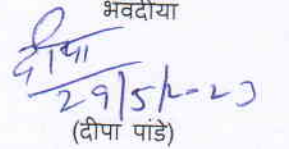 भवदीया
दीपा
29/5/2023
(दीपा पांडे)